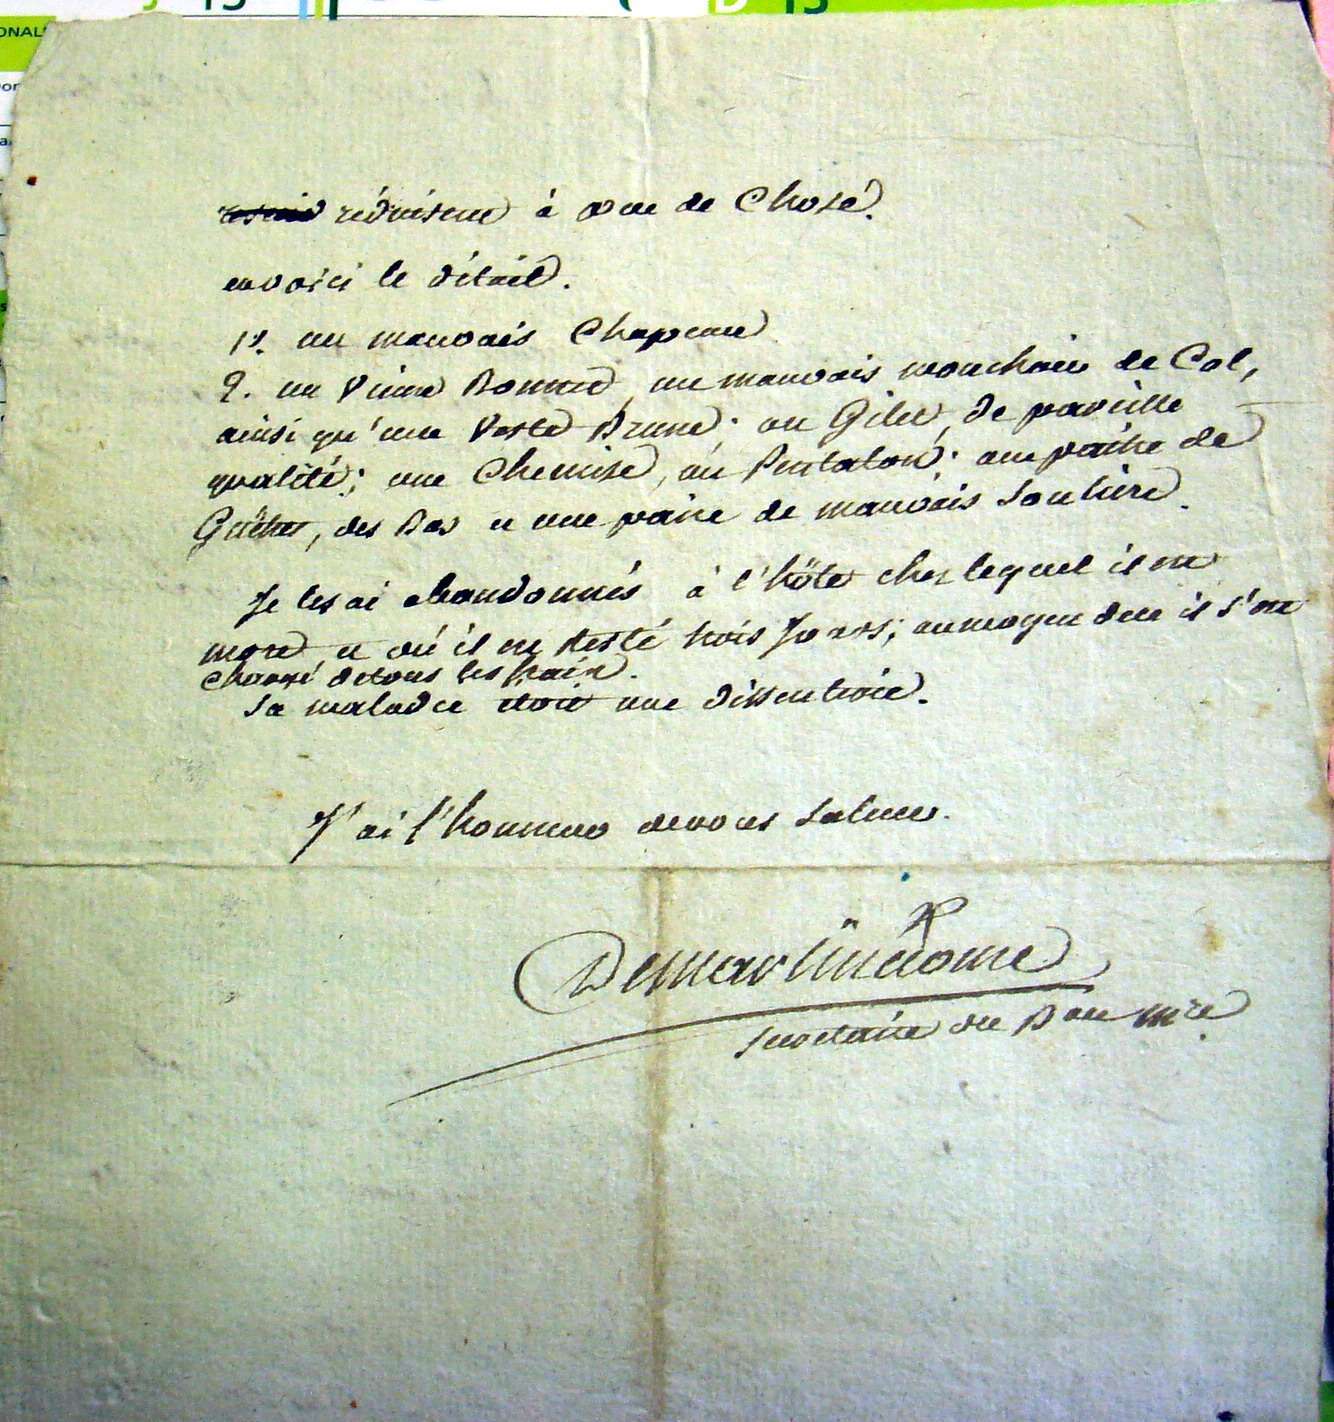 réduisent à peu de Chose.
en voici le détail.
1°. un mauvais Chapeau
2. un vieux Bonnet, un mauvais mouchoir de Col,
ainsi qu'une Veste Brune; un Gilet, de pareille
qualité; une Chemise, un Pentalon; une paire de
Guêttes, des Bas et une paire de mauvais Souliers.
Je les ai abandonnés à l'hôte chez lequel il est
mort et où il est Resté trois Jours; au moyen de ce il s'est
chargé de tous les frais.
Sa maladie étoit une dissentrie.
J'ai l'honneur de vous Saluer.
Demartindome
Secrétaire du Bau mre